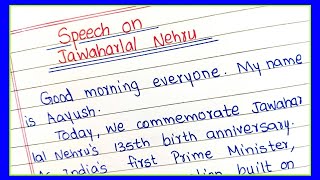 Speech on
Jawaharlal Nehru
Good morning everyone. My name
is Aayush.
Today, we commemorate Jawahar
lal Nehru's 135th birth anniversary.
As India's first Prime Minister,
built on